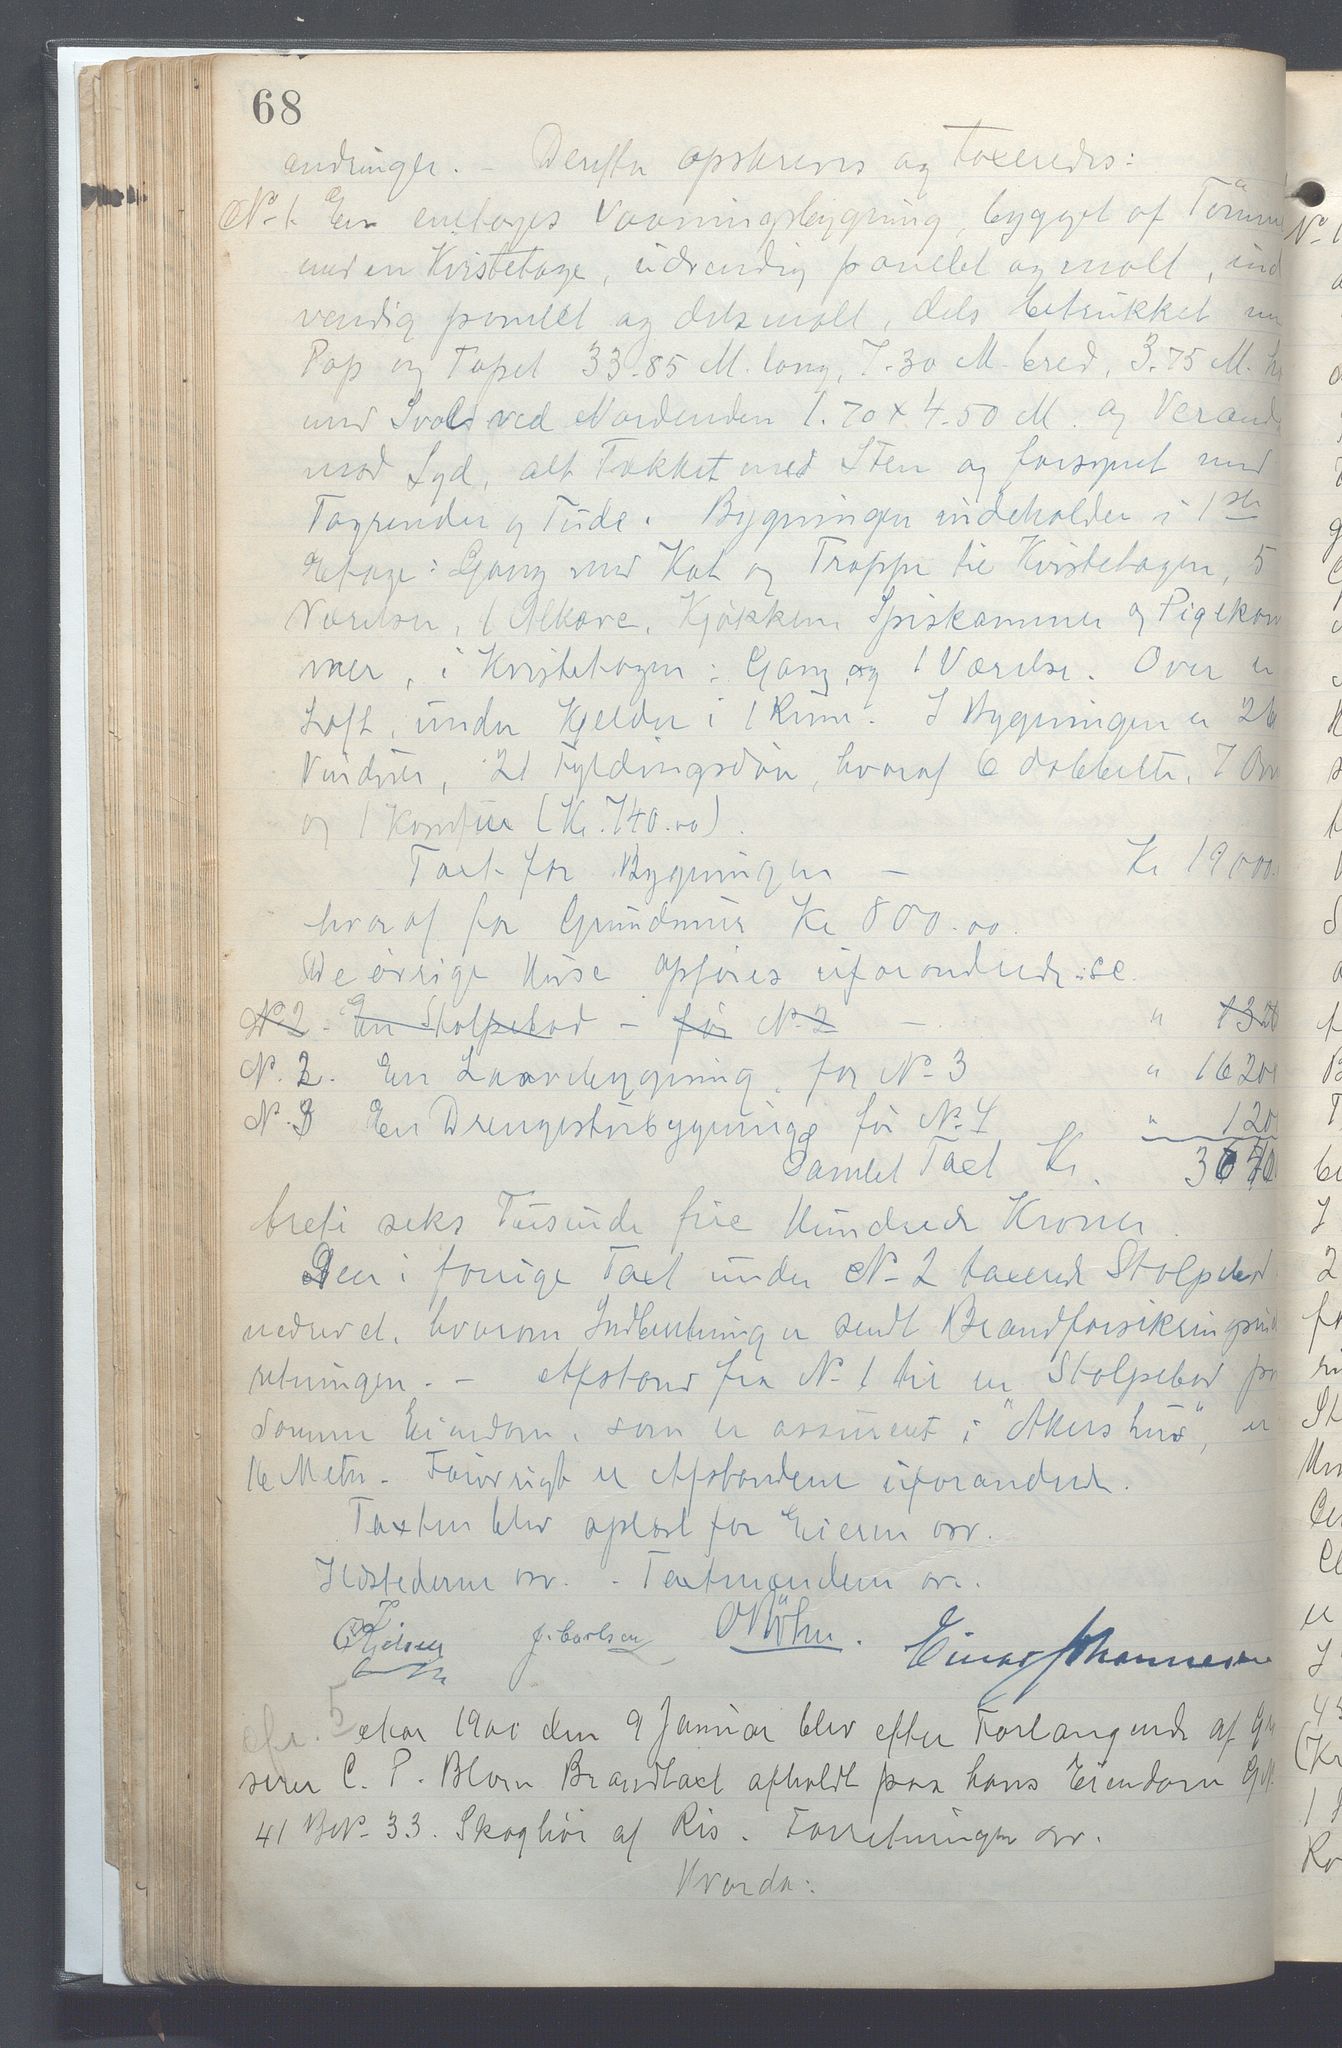 68
andringer. - Derefter opskreves og taxeredes:
No 1. En enetages Vaaningsbygning, bygget af Tömme
med en Kvistetage, udvendig panelet og malt, ind
vendig panelet og dels malt, dels betrukket me
Pap og Tapet 33.85 M. lang, 7.30 M. bred, 3.75 M. h
med Sval ved Nordenden 1.70 x 4.50 M. og Verand
mod Syd, alt Tækket med Sten og forsynet med
Tagrender og Tude. Bygningen indeholder i 1ste
Etage: Gang med Kot og Trappe til Kvistetagen, 5
Værelser, 1 Alkove, Kjøkken, Spiskammer og Pigekam
mer, i Kvistetagen: Gang og 1 Værelse. Over er
Loft, under Kjelder i 1 Rum. I Bygningen er 26
Vinduer, 21 Fyldingsdøre, hvoraf 6 dobbelte, 7 Ovn
og 1 Komfur (Kr. 740.00).
Taxt for Bygningen - Kr 19000.
hvoraf for Grundmur Kr 800.00.
De øvrige Huse opføres uforandrede: se
No 2. En Stolpebod - før No 2 - " 1320
No. 2. En Laavebygning, før No 3 " 1620
No. 3 En Drengestubygning før No. 4 " 120
Samlet Taxt Kr. 3640
treti seks Tusinde fire Hundrede Kroner.
Den i forrige Taxt under No 2 taxerede Stolpebod
nedrevet, hvorom Indberetning er sendt Brandforsikringsind
retningen. - Afstand fra No 1 til en Stolpebod på
samme Eiendom, som er assureret i "Akershus", er
16 Meter. Forøvrigt er Afstandene uforandrede.
Taxten blev oplæst for Eieren osv.
Ildstederne osv. - Taxtmændene osv.
J. Carlsen O Böhn. Einar Johannesen
cfr. 5
Aar 1900 den 9 Januar blev efter Forlangende af G
serer C. P. Blom Brandtaxt afholdt paa hans Eiendom G.N.
41 B.No. 33. Skoglüi af Ris. Forretningen osv.
Hvorda: